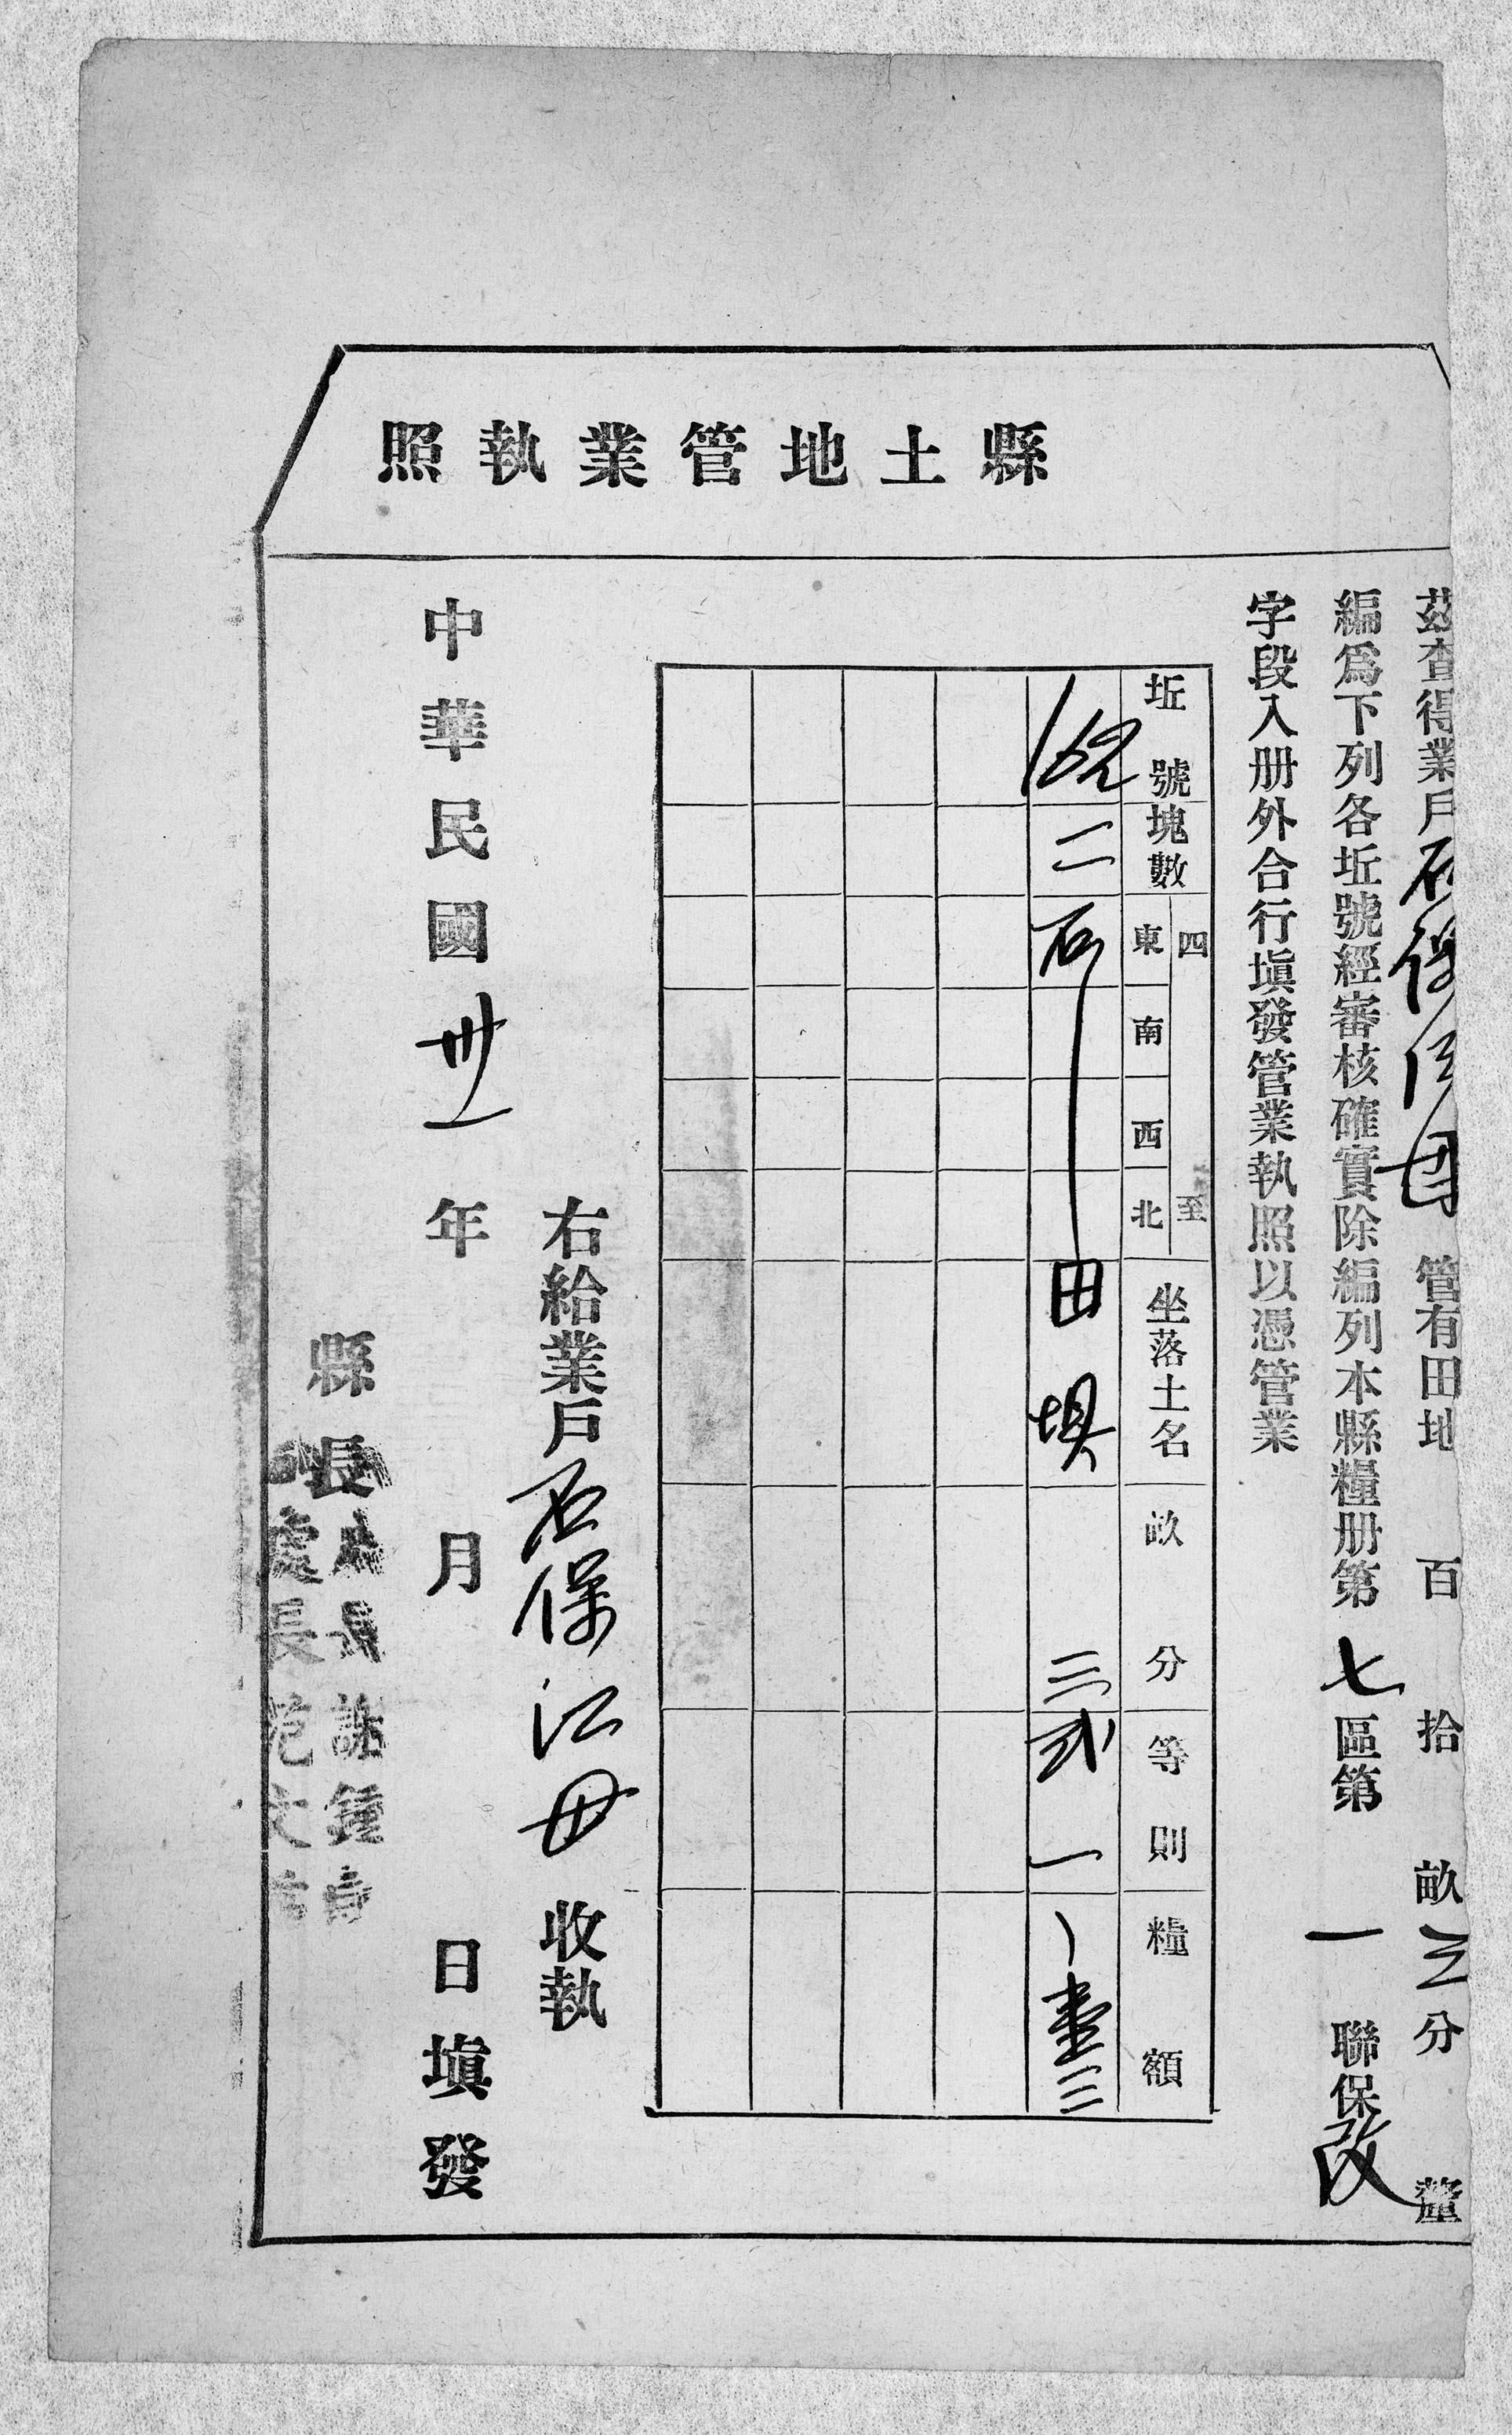 縣土地管業執照
茲查得業戶石保江母管有田地 百 拾 畝三分 釐
編爲下列各坵號經審核確實除編列本縣糧册第七區第一聯保改
字段入册外合行塡發管業執照以憑管業
坵號 塊數 四至 東 南 西 北 坐落土名 畝分 等則 糧額
二 石 田垻 三 弍 一 壹三
右給業戶石保江母收執
中華民國卅一年 月 日塡發
縣長
處長范文